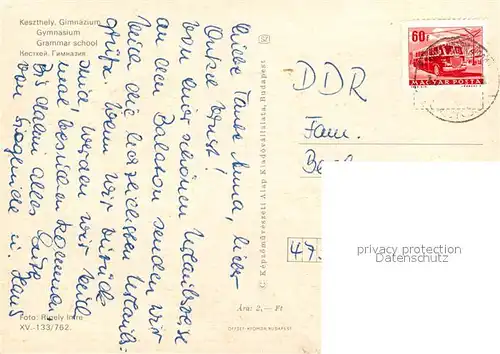 Keszthely, Gimnázium
Gymnasium
Grammar school
Кестхей. Гимназия
Liebe Tante Anna, lieber
Onkel Ernst!
Von einer schönen Urlaubsreise
an den Balaton senden wir
beide die herzlichsten Urlaubs-
grüße. Wenn wir zurück
sind, werden wir beide
mal besuchen kommen.
Bis dahin alles Gute
von u.
Foto: Rigely Imre
XV.-133/762.
C. Képzőművészeti Alap Kiadóvállalata, Budapest
Ára: 2,— Ft
OFFSET-NYOMDA BUDAPEST
60f
MAGYAR POSTA
DDR
Fam.
47
privacy protection
watermark